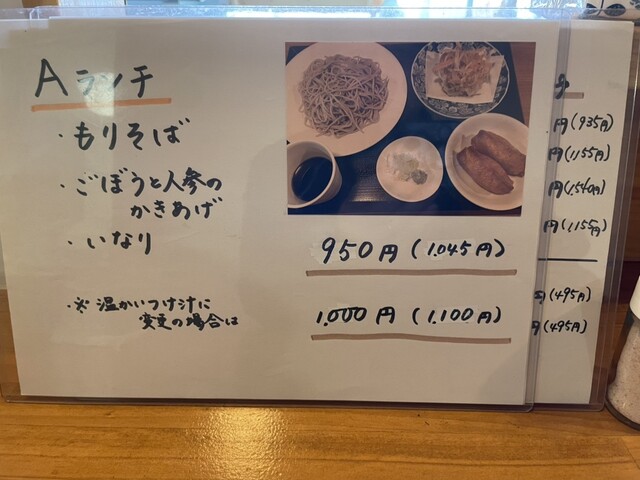 Aランチ
・もりそば
・ごぼうと人参の
かきあげ
・いなり
950円 (1.045円)
・※ 温かいつけ汁に
変更の場合は
1.000円 (1.100円)
円(935円)
円(1155円)
円(1.540円)
円(1.155円)
円(495円)
円(495円)